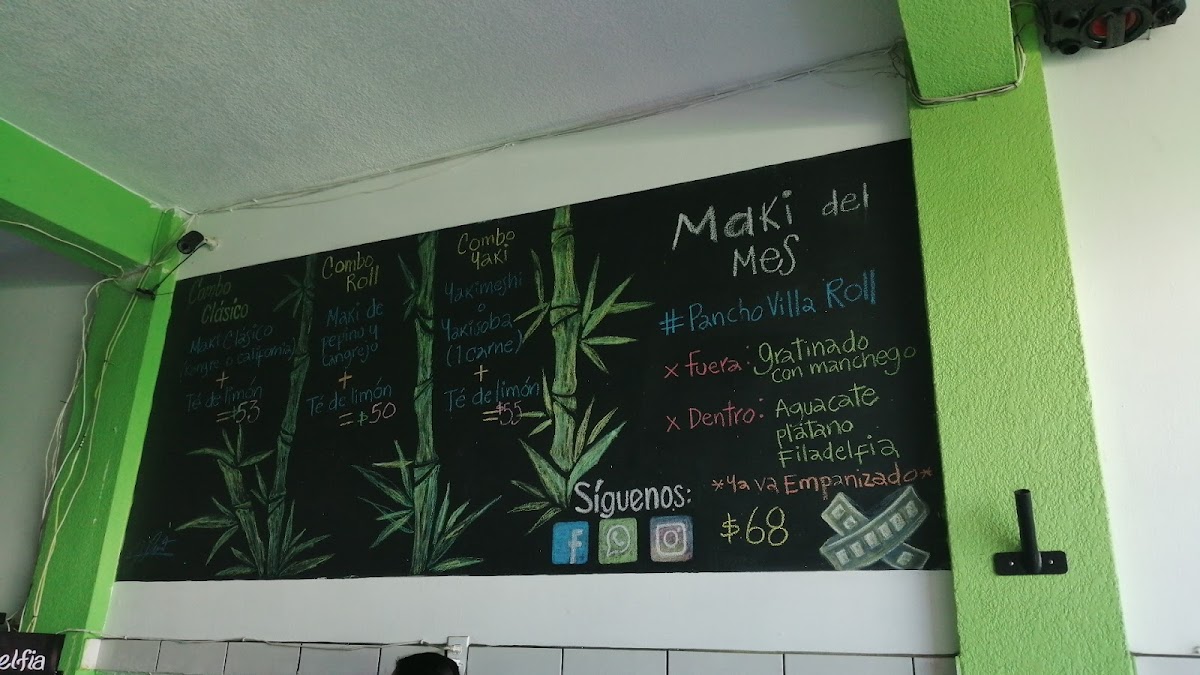 Combo
Clásico
Maki Clásico
california)
+
Té de limón
=$53
Combo
Roll
Maki de
pepino y
Cangrejo
+
Té de limón
=$50
Combo
Yaki
Yakimeshi
o
Yakisoba
(1 carne)
+
Té de limón
=$55
Maki del
Mes
#PanchoVilla Roll
x Fuera: gratinado
con manchego
x Dentro: Aguacate
plátano
Filadelfia
*Ya va Empanizado*
$68
Síguenos:
f
elfia